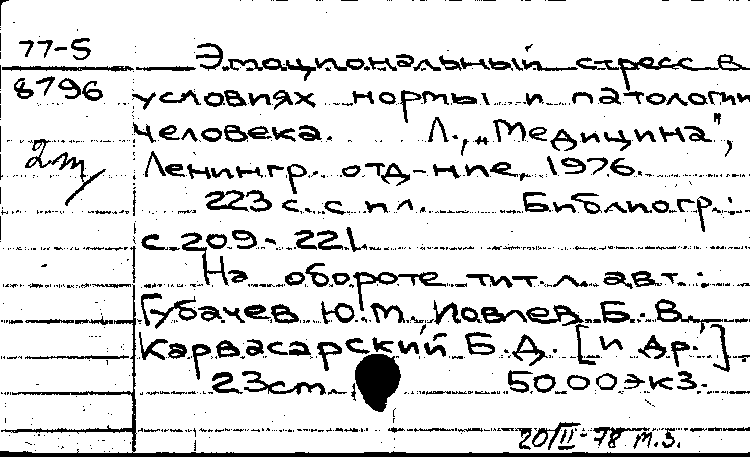 77-5 Эмоциональный стресс в
8796 условиях нормы и патологии
человека. Л., „Медицина",
2т Ленингр. отд-ние, 1976.
223 с. с ил. Библиогр.:
с. 209-221.
На обороте тит. л. авт.:
Губачев Ю.М. Иовлев Б.В.,
Карвасарский Б.Д. [и др.].
23см. 5000экз.
20/II-78 т.з.